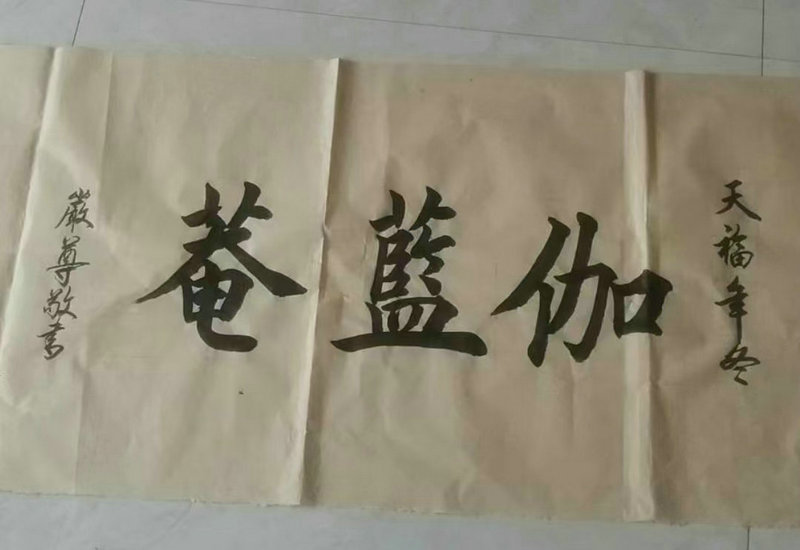 天福年冬
伽藍菴
嚴尊敬書